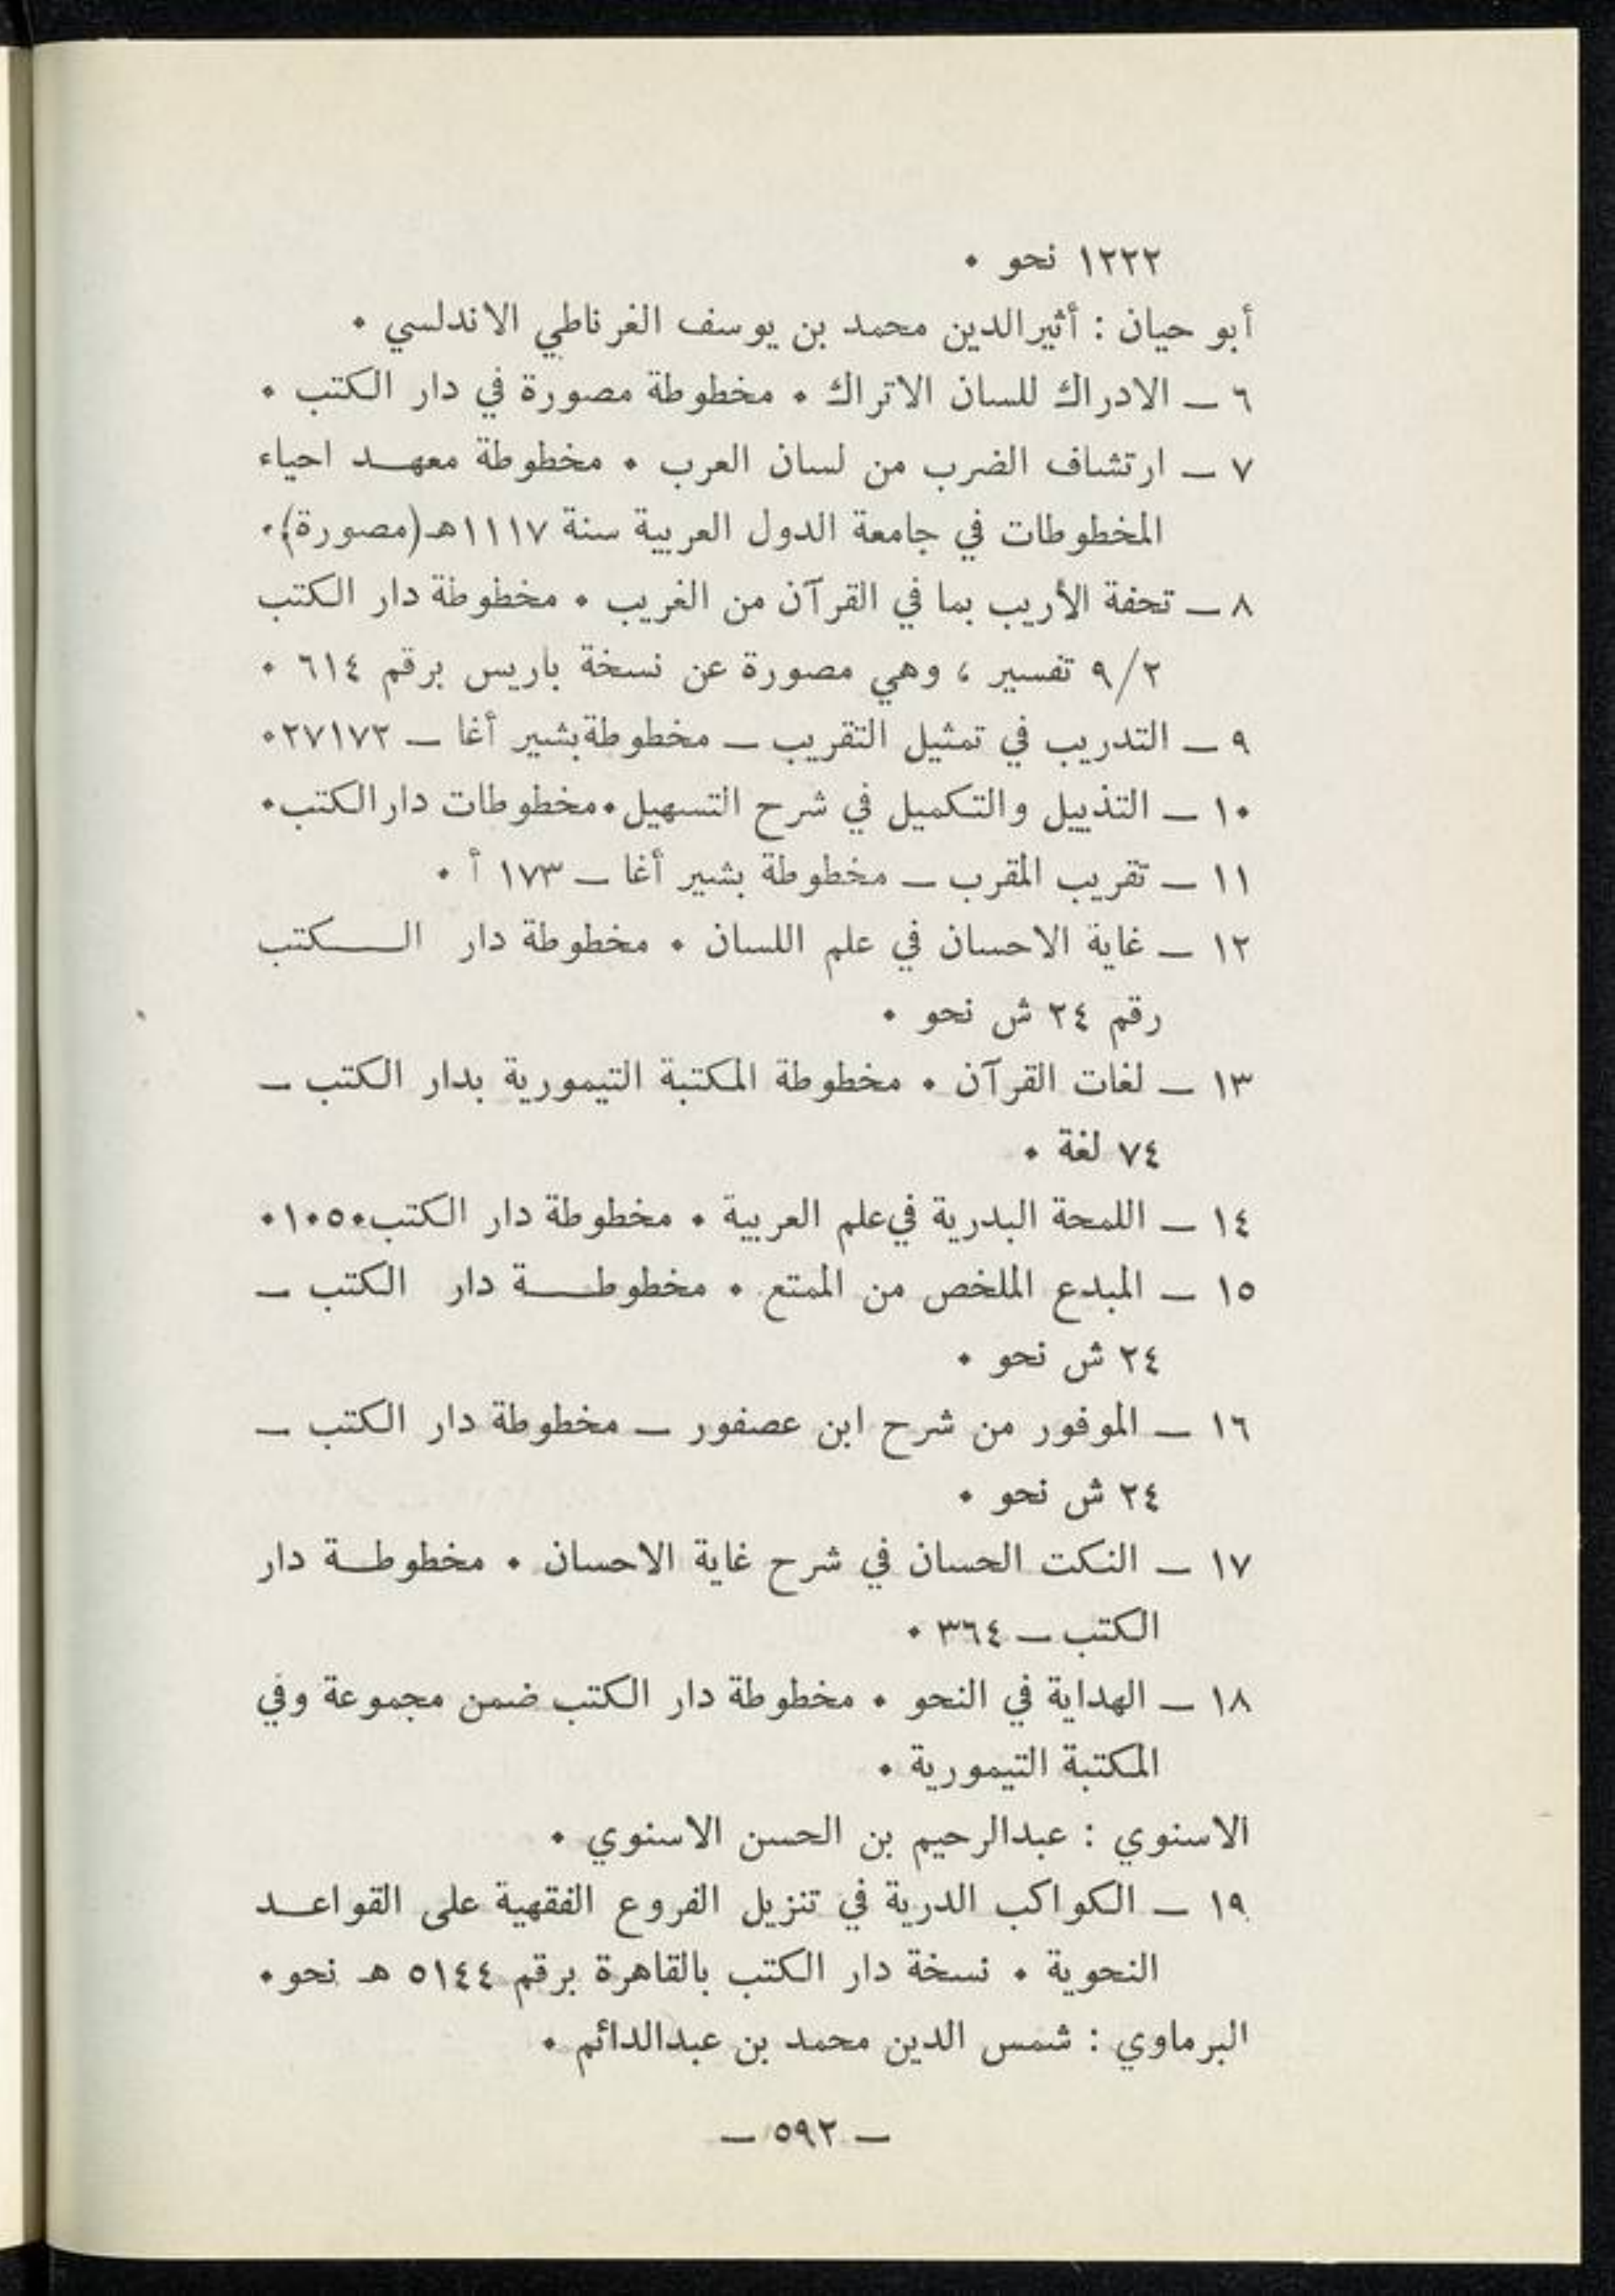 ١٢٢٢ نحو ٠
أبو حيان : أثيرالدين محمد بن يوسف الغرناطي الاندلسي ٠
٦ – الادراك للسان الاتراك ٠ مخطوطة مصورة في دار الكتب ٠
٧ – ارتشاف الضرب من لسان العرب ٠ مخطوطة معهد احياء
المخطوطات في جامعة الدول العربية سنة ١١١٧هـ (مصورة)٠
٨ – تحفة الأريب بما في القرآن من الغريب ٠ مخطوطة دار الكتب
٩/٢ تفسير ، وهي مصورة عن نسخة باريس برقم ٦١٤ ٠
٩ – التدريب في تمثيل التقريب – مخطوطة بشير أغا – ٢٧١٧٢٠
١٠ – التذييل والتكميل في شرح التسهيل٠مخطوطات دارالكتب٠
١١ – تقريب المقرب – مخطوطة بشير أغا – ١٧٣ أ ٠
١٢ – غاية الاحسان في علم اللسان ٠ مخطوطة دار الكتب
رقم ٢٤ ش نحو ٠
١٣ – لغات القرآن ٠ مخطوطة المكتبة التيمورية بدار الكتب –
٧٤ لغة ٠
١٤ – اللمحة البدرية في علم العربية ٠ مخطوطة دار الكتب٠١٠٥٠
١٥ – المبدع الملخص من الممتع ٠ مخطوطة دار الكتب –
٢٤ ش نحو ٠
١٦ – الموفور من شرح ابن عصفور – مخطوطة دار الكتب –
٢٤ ش نحو ٠
١٧ – النكت الحسان في شرح غاية الاحسان ٠ مخطوطة دار
الكتب – ٣٦٤ ٠
١٨ – الهداية في النحو ٠ مخطوطة دار الكتب ضمن مجموعة وفي
المكتبة التيمورية ٠
الاسنوي : عبدالرحيم بن الحسن الاسنوي ٠
١٩ – الكواكب الدرية في تنزيل الفروع الفقهية على القواعد
النحوية ٠ نسخة دار الكتب بالقاهرة برقم ٥١٤٤ هـ نحو٠
البرماوي : شمس الدين محمد بن عبدالدائم ٠
– ٥٩٢ –